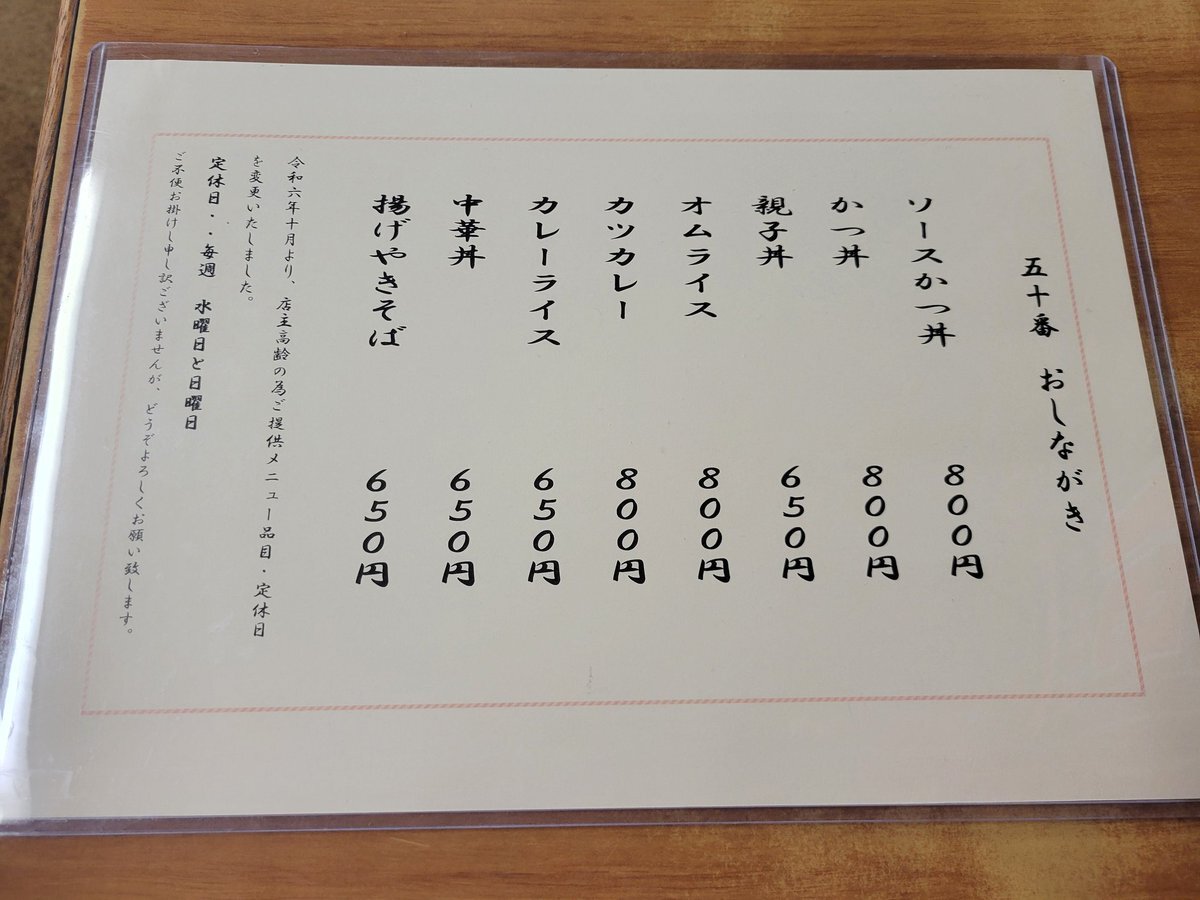 五十番 おしながき
ソースかつ丼 800円
かつ丼 800円
親子丼 650円
オムライス 800円
カツカレー 800円
カレーライス 650円
中華丼 650円
揚げやきそば 650円
令和六年十月より、店主高齢の為ご提供メニュー品目・定休日
を変更いたしました。
定休日・・毎週 水曜日と日曜日
ご不便お掛けし申し訳ございませんが、どうぞよろしくお願い致します。